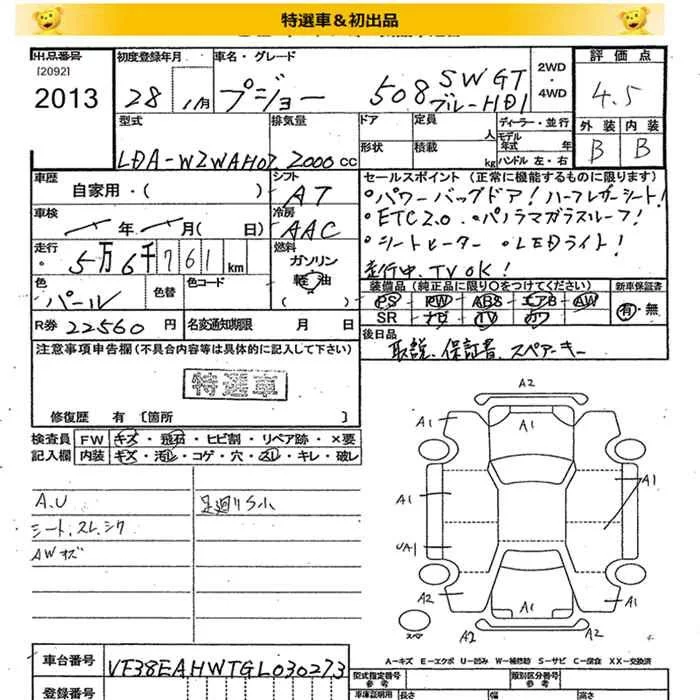 特選車＆初出品
出品番号 初度登録年月 車名・グレード 2WD・4WD 評価点
[2092]
2013 28 月 プジョー 508 SW GT ブルーHDI 4.5
型式 排気量 ドア 定員 人 ディーラー・並行 外装 内装
形状 積載 kg モデル年式 年 ハンドル 左・右 B B
LDA-W2WAH02 2000 cc
車歴 シフト セールスポイント（正常に機能するものに限ります）
自家用・( ) AT ・パワーバックドア！ハーフレザーシート！
車検 冷房 ・ETC2.0 ・パノラマガラスルーフ！
年 月( 日) AAC ・シートヒーター ・LEDライト！
走行 燃料 走行中、TV OK！
5万6千761 km ガソリン
軽油
( )
色 色替 色コード 装備品（純正品に限り○をつけてください） 新車保証書
パール PS PW ABS エアB AW 有・無
SR ナビ TV カワ
R券 22560 円 名変通知期限 月 日 後日品
取説、保証書、スペアーキー
注意事項申告欄（不具合内容等は具体的に記入して下さい）
特選車
修復歴 有 〔箇所 〕
検査員 FW キズ・飛石・ヒビ割・リペア跡・×要
記入欄 内装 キズ・汚レ・コゲ・穴・スレ・キレ・破レ
A.U 足廻りS小
シート、スレ、シワ
AWキズ
A2
A1 A1
A1 A1
UA1
A2 A1 A2
A2 A2
スペア
A－キズ E－エクボ U－凹み W－補修跡 S－サビ C－腐食 XX－交換済
車台番号 VF38EAHWTGL030273
型式指定番号 参考 類別区分番号 参考
登録番号 車庫証明用 長さ 幅 高さ
参考